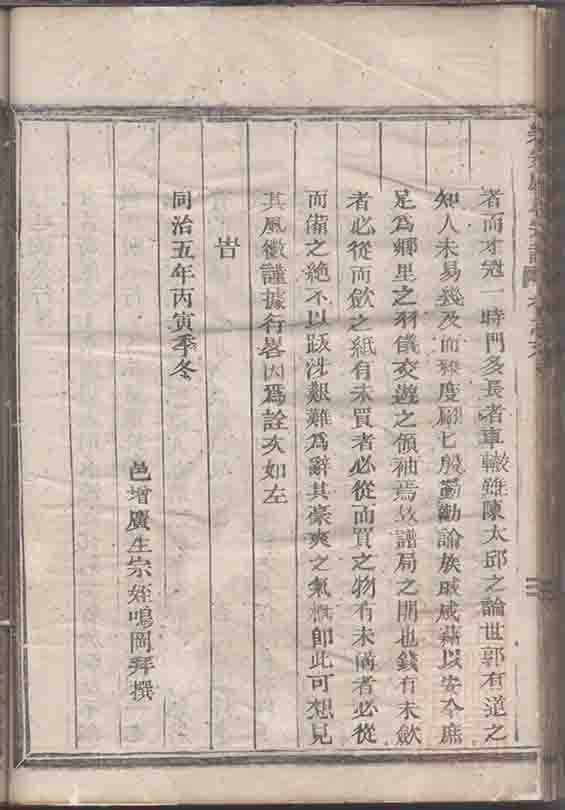 者而才冠一時門多長者車轍雖陳太邱之論世郭有道之
知人未易幾及而豫度勸論族戚咸藉以安今庶
足為鄉里之羽儀交遊之領袖焉故譜局之開也錢有未歛
者必從而歛之紙有未買者必從而買之物有未備者必從
而備之絶不以跋涉艱難為辭其豪爽之氣槩即此可想見
其風徽謹據行畧因為詮次如左
旹
同治五年丙寅季冬
邑增廣生宗姪鳴岡拜撰